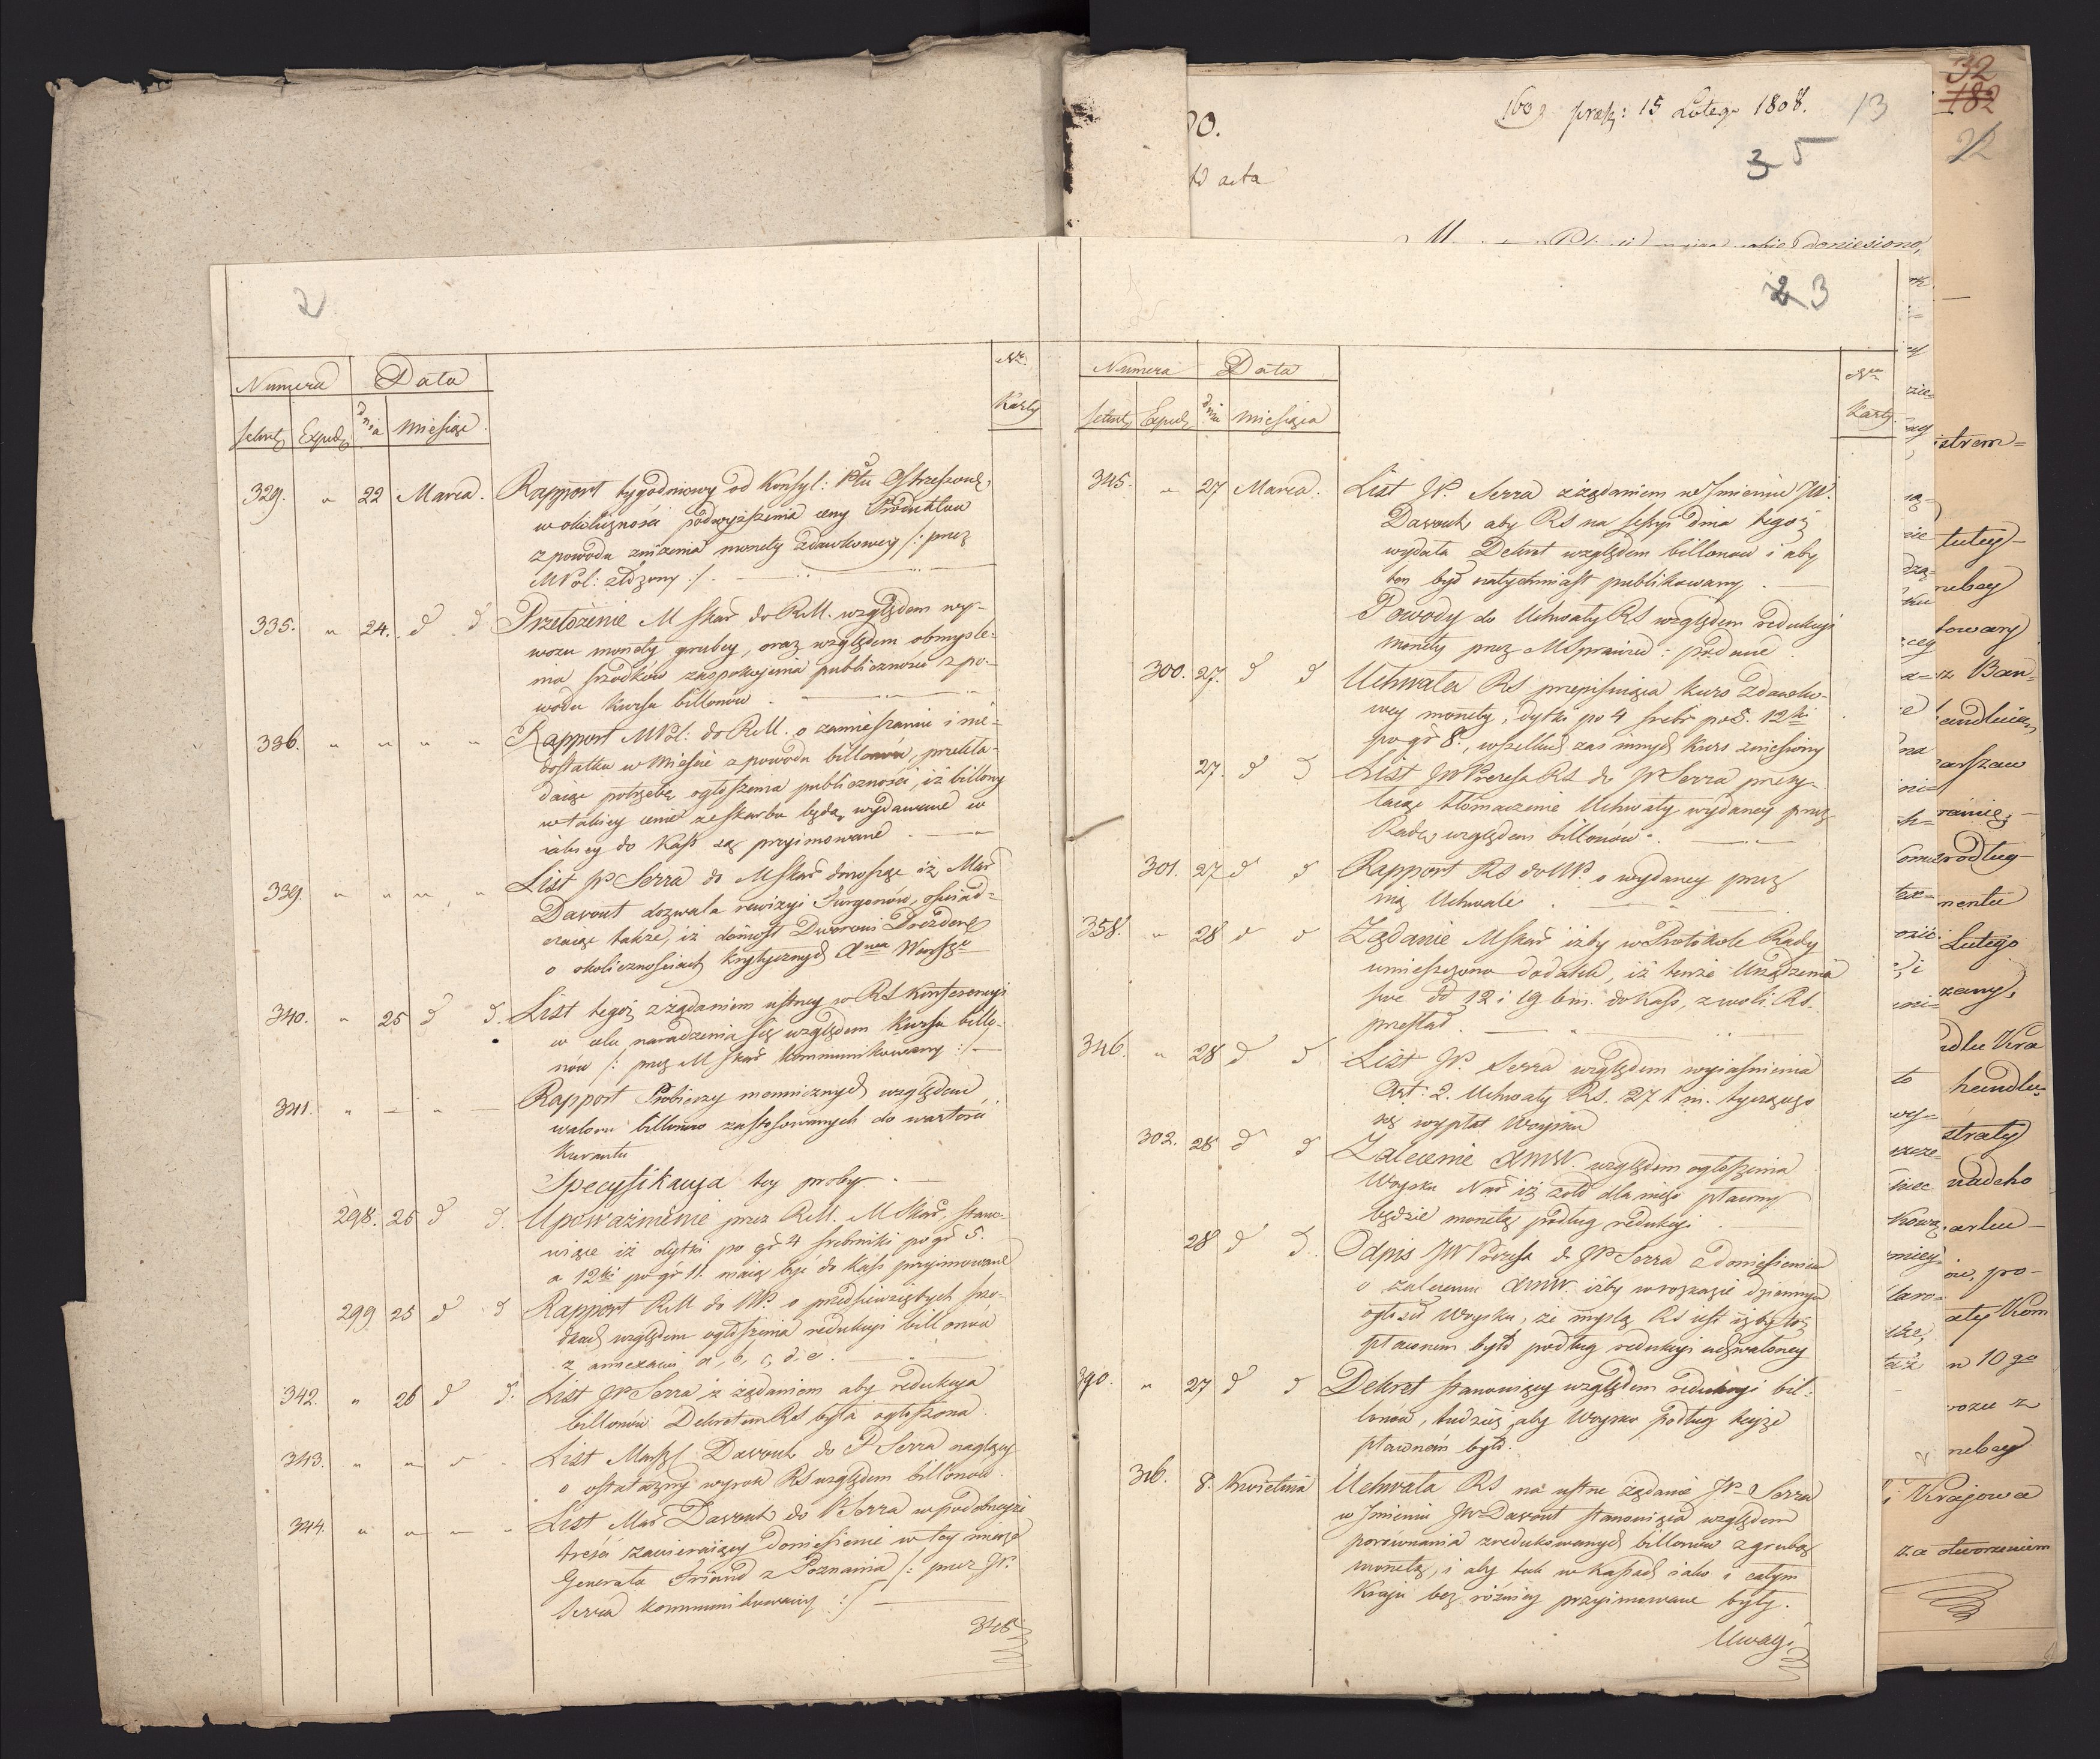 2
Numera Data Nr
Sekret. Exped. dnia Miesiąc Karty
329. " 22 Marca. Rapport tygodniowy od Konsyl: Pttu Ostrzeszowsk,
w okoliczności podwyższenia ceny Produktów
z powodu zniżenia monety zdawkowey /: przez
M Pol: złożony :/.
335. " 24. d d Przełożenie M Skar do RM. względem wy-
wozu monety grubey, oraz względem obmyśle-
nia srzodków zaspokojenia publiczności z po-
wodu kursu billonów
336. " " " " Rapport M Pol: do RM. o zamieszaniu i nie-
dostatku w mieście z powodu billonów, przekła-
daiąc potrzebę ogłoszenia publiczności, iż billony
w takiey cenie ze skarbu będą wydawane w
iakiey do Kass są przyimowane
339. " " " " List JP Serra do M Skar donosząc iż Mar
Davout dozwala rewizyi Furgonów, oświad-
czaiąc także, iż doniosł Dworowi Drezdeńs
o okolicznościach krytycznych Xtwa Warszgo
340. " 25 d d. List tegoż z żądaniem ustney w RS konferencyi
w celu naradzenia się względem kursu billo-
nów /: przez M Skar kommunikowany :/
341. " " " Rapport Probierzy mennicznych względem
waloru billonów zastosowanych do wartości
Kurantu
Specyfikacya tey proby.
298. 25 d d. Upoważnienie przez RM. M Skar, stano-
wiące iż dytki po gr 4 srebrniki po gr 5.
a 12ki po gr 11. maią być do Kass przyimowane
299. 25 d d Rapport RM do NP. o przedsięwziętych śro-
dkach względem ogłoszenia redukcyi billonów
z annexami a, b, c, d, e.
342. " 26 d d. List JP Serra z żądaniem aby redukcya
billonów Dekretem RS była ogłoszona.
343. " " " " List Marsz Davout do P Serra naglący
o ostateczny wyrok RS względem billonów.
344. " " " " List Mar Davout do P Serra w podobneyże
treści zawieraiący doniesienie w tey mierze
Generała Friand z Poznania /: przez JP.
Serra kommunikowany :/
345
2 3
Numera Data Nro
Sekret Exped, dnia Miesiąca Karty
345. " 27 Marca. List JP. Serra z żądaniem w Imieniu JW.
Davout aby RS na sessyi dnia tegoż
wydała Dekret względem billonów i aby
ten był natychmiast publikowany.
Powody do Uchwały RS względem redukcyi
monety przez M Sprawied: podane.
300. 27. d d Uchwała RS przepisuiąca kurs zdawko-
wey monety, dytki po 4 srebr po 5. 12ki
po gr 8., wszelkich zaś innych kurs zniesiony
27. d d List JW Prezesa RS do JP Serra przesy-
łaiąc tłomaczenie Uchwały wydaney przez
Radę względem billonów.
301. 27 d d Rapport RS do NP. o wydaney przez
nią Uchwale.
358. " 28 d d Żądanie M Skar iżby w Protokole Rady
umieszczono dodatek, iż tenże Urządzenia
swe dd 12 i 19 b.m. do Kass, z woli RS.
przesłał.
346. " 28 d d List JP. Serra względem wyiaśnienia
Art: 2. Uchwały RS. 27 t m. tyczącego
się wypłat Woysku
302. 28 d d Zalecenie XMW. względem ogłoszenia
Woysku Nar iż żołd dla niego płacony
będzie monetą podług redukcyi.
28 d d. Odpis JW Prezesa do JP Serra z doniesieniem
o zaleceniu XMW. iżby w rozkazie dziennym
ogłosił Woysku, że myślą RS iest iżby toż
płaconem było podług redukcyi uchwaloney
390. " 27 d d Dekret stanowiący względem redukcyi bil-
lonów, tudzież aby Woysko podług teyże
płacone było.
316. 8. Kwietnia Uchwała RS na ustne żądanie JP Serra
w Imieniu JW Davout stanowiąca względem
porównania zredukowanych billonów z grubą
monetą, i aby tak w Kassach iako i całym
Kraju bez różnicy przyimowane były.
Uwagi
1603 præs: 15 Lutego 1808. 13
3 5
ad acta
doniesiono,
32
182
22
Lutego
zany,
handlu
straty
n 10go
Krajowa
za otworzeniem